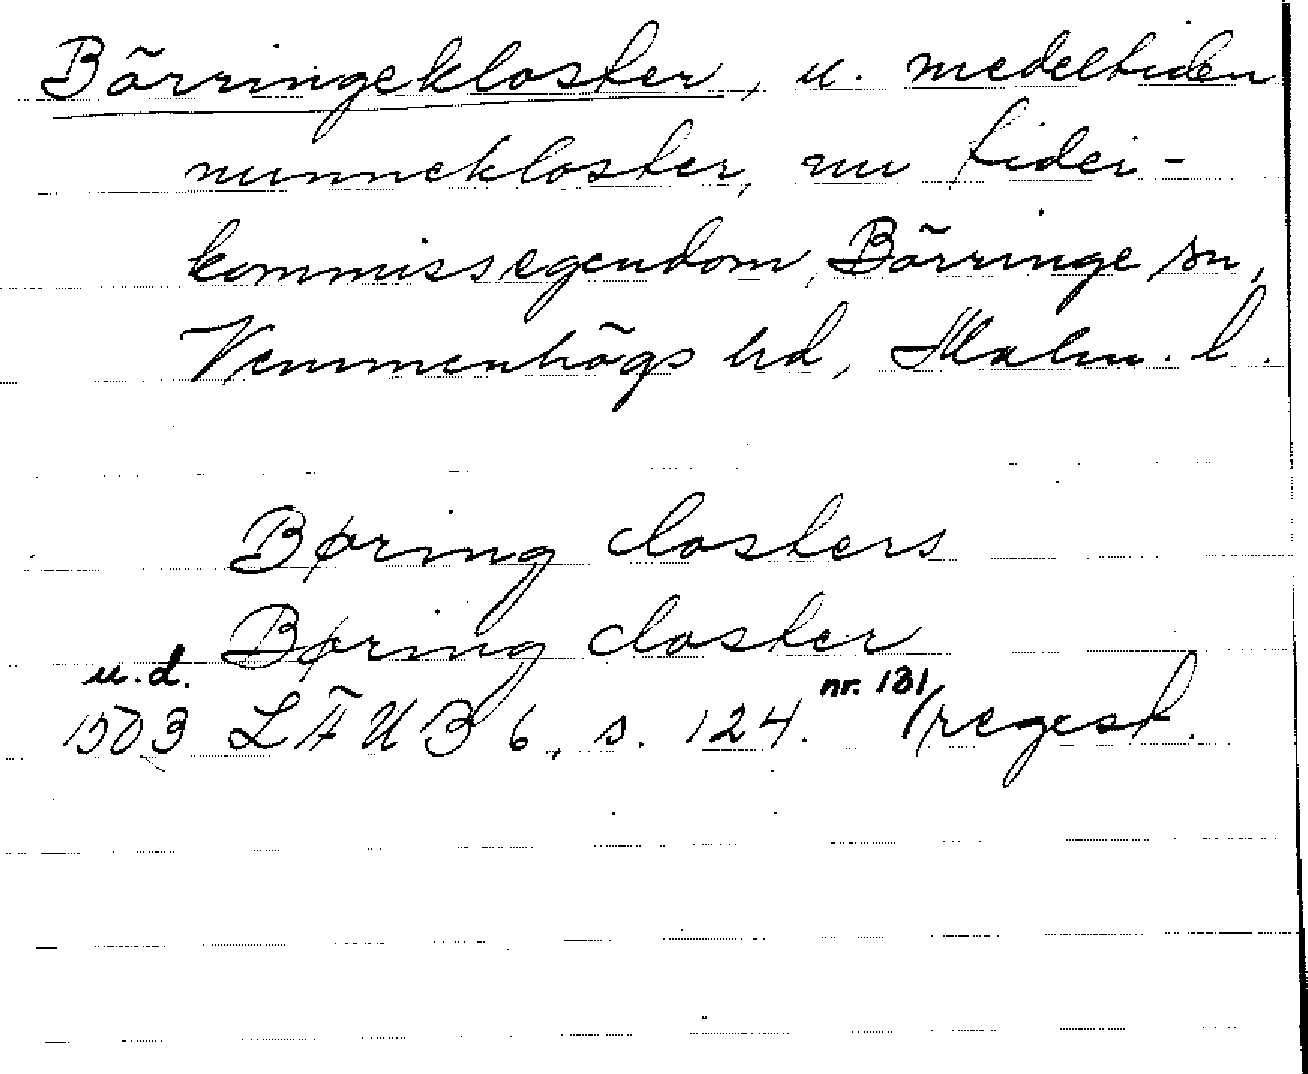 Börringekloster, u. medeltiden
nunnekloster, nu fidei-
kommissegendom, Börringe sn,
Vemmenhögs hd, Malm. l.
Børing closters
Børing closter
u.d. nr. 131
1503 LÄUB 6, s. 124. (regest.